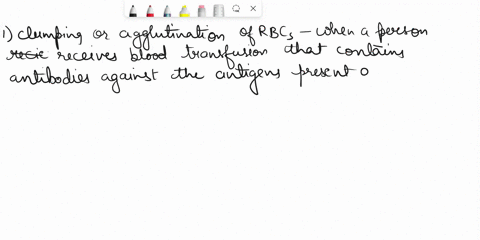 1) Clumping or agglutination of RBCs – when a person
receives blood transfusion that contains
antibodies against the antigens present o